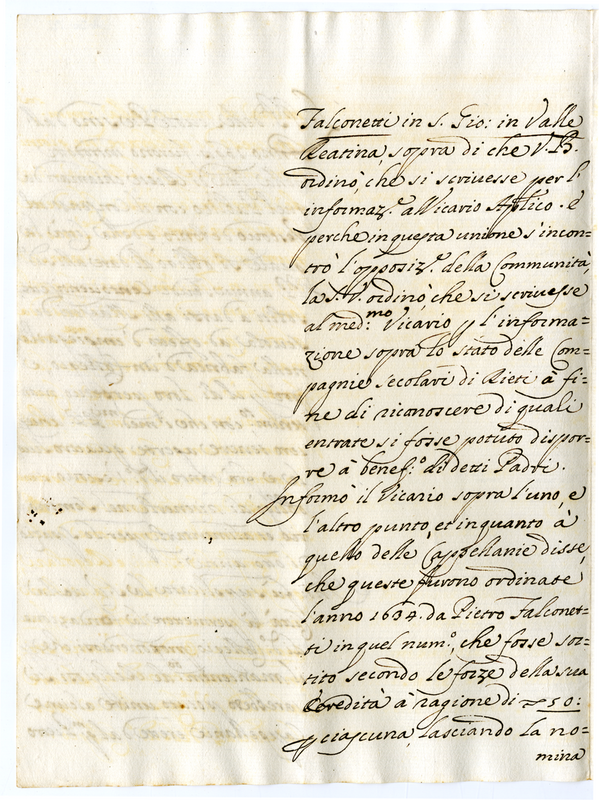 Falconetti in S. Gio: in Valle
Reatina, sopra di che V. B.
ordinò, che si scrivesse per l'
informaz.e al Vicario Applico. e
perche in questa unione s'incon=
trò l'opposiz.e della Communità,
la S. V. ordinò, che si scrivesse
al med:mo Vicario p l'informa=
zione sopra lo stato delle Com=
pagnie secolari di Rieti à fi=
ne di riconoscere di quali
entrate si fosse potuto dispor=
re à benef:o di detti Padri.
Informò il Vicario sopra l'uno, e
l'altro punto, et in quanto à
quello delle Cappellanie disse,
che queste furono ordinate
l'anno 1634. da Pietro Falconet=
ti in quel num:o, che fosse sor=
tito secondo le forze della sua
Eredità à ragione di 50:
p ciascuna, lasciando la no=
mina